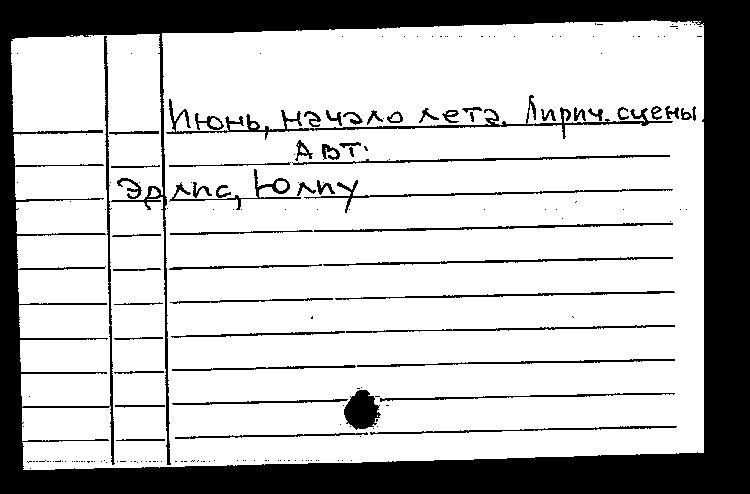 Июнь, начало лета. Лирич. сцены.
Авт:
Эдлис, Юлиу